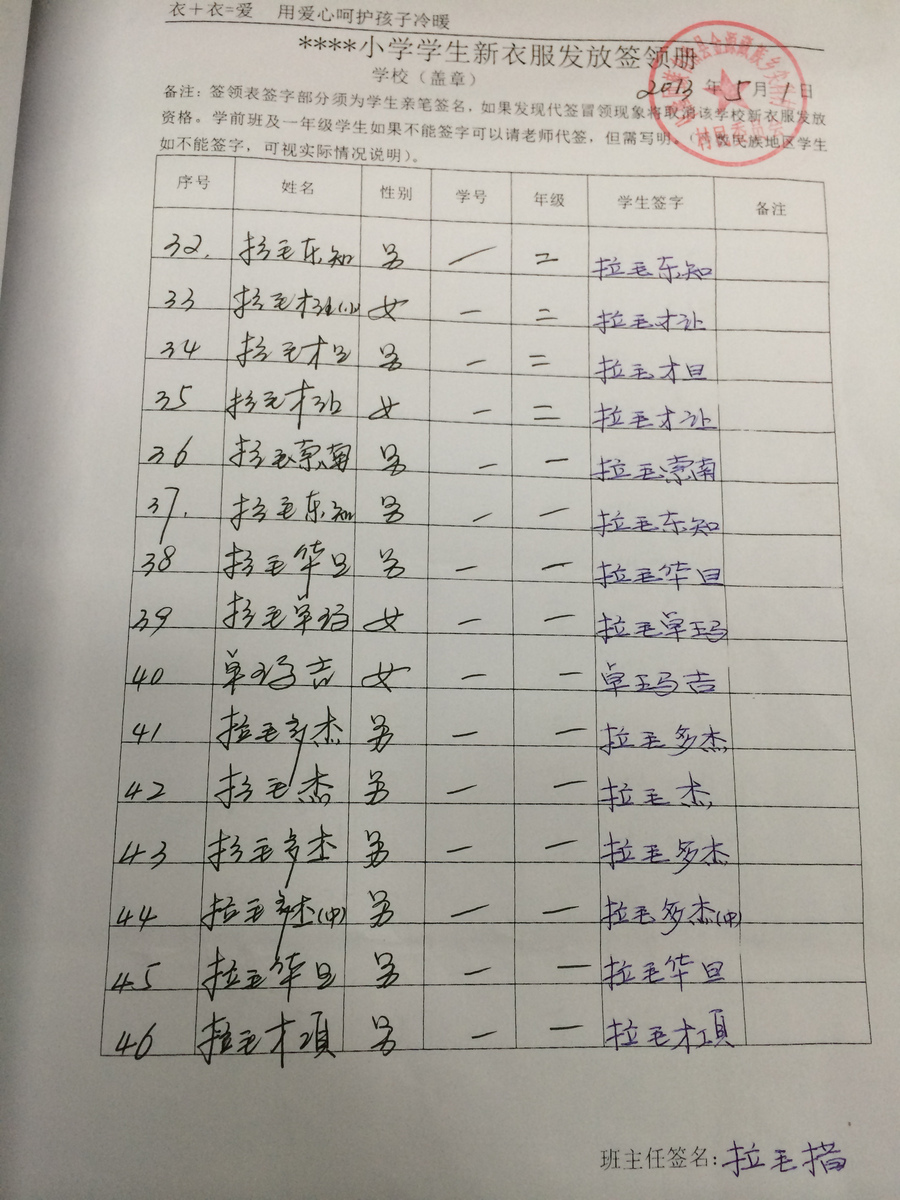 衣＋衣=爱 用爱心呵护孩子冷暖
****小学学生新衣服发放签领册
学校（盖章） 2013年5月1日
备注：签领表签字部分须为学生亲笔签名，如果发现代签冒领现象将取消该学校新衣服发放
资格。学前班及一年级学生如果不能签字可以请老师代签，但需写明。（少数民族地区学生
如不能签字，可视实际情况说明）。
序号 姓名 性别 学号 年级 学生签字 备注
32. 拉毛东知 男 一 二 拉毛东知
33 拉毛才让(小) 女 一 二 拉毛才让
34 拉毛才旦 男 一 二 拉毛才旦
35 拉毛才让 女 一 二 拉毛才让
36 拉毛索南 男 一 一 拉毛索南
37. 拉毛东知 男 一 一 拉毛东知
38 拉毛华旦 男 一 一 拉毛华旦
39 拉毛卓玛 女 一 一 拉毛卓玛
40 卓玛吉 女 一 一 卓玛吉
41 拉毛多杰 男 一 一 拉毛多杰
42 拉毛杰 男 一 一 拉毛杰
43 拉毛多杰 男 一 一 拉毛多杰
44 拉毛多杰(中) 男 一 一 拉毛多杰(中)
45 拉毛华旦 男 一 一 拉毛华旦
46 拉毛才项 男 一 一 拉毛才项
班主任签名:拉毛措